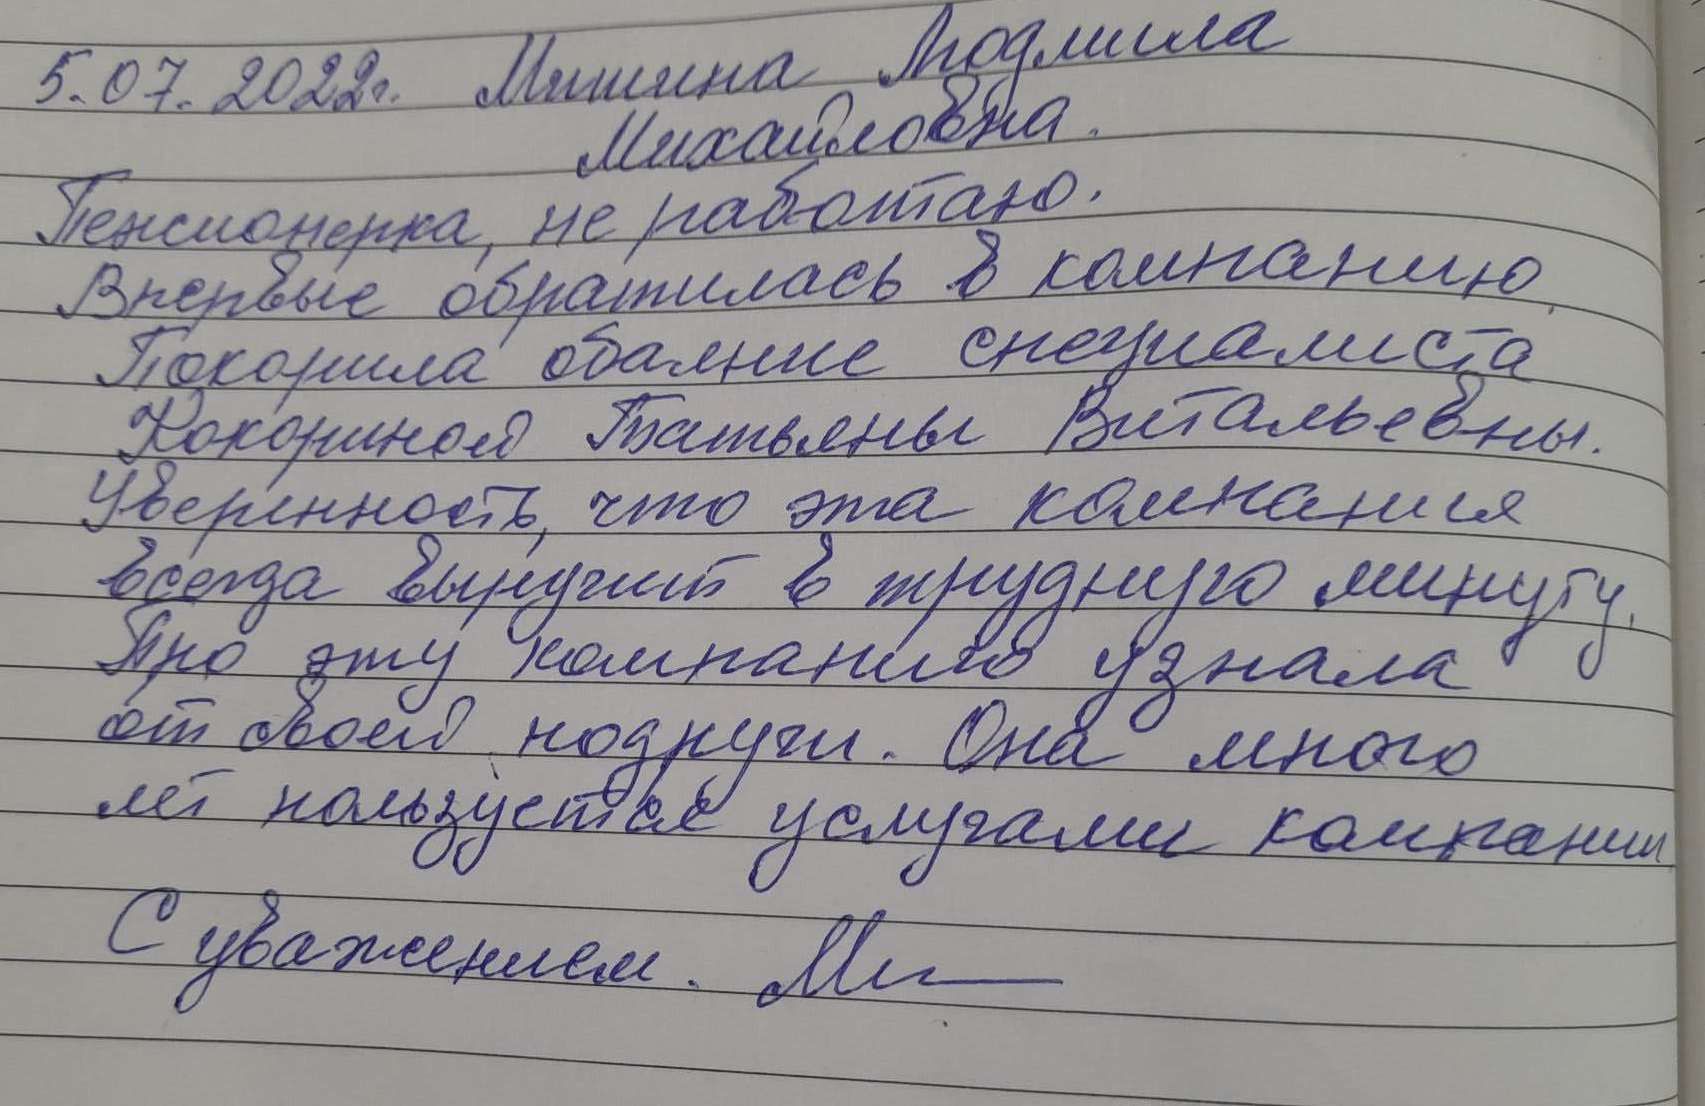 5.07.2022г. Мишина Людмила
Михайловна.
Пенсионерка, не работаю.
Впервые обратилась в компанию,
Покорила обаяние специалиста
Кокориной Татьяны Витальевны.
Уверенность, что эта компания
всегда выручит в трудную минуту.
Про эту компанию узнала
от своей подруги. Она много
лет пользуется услугами компании
С уважением. Ми